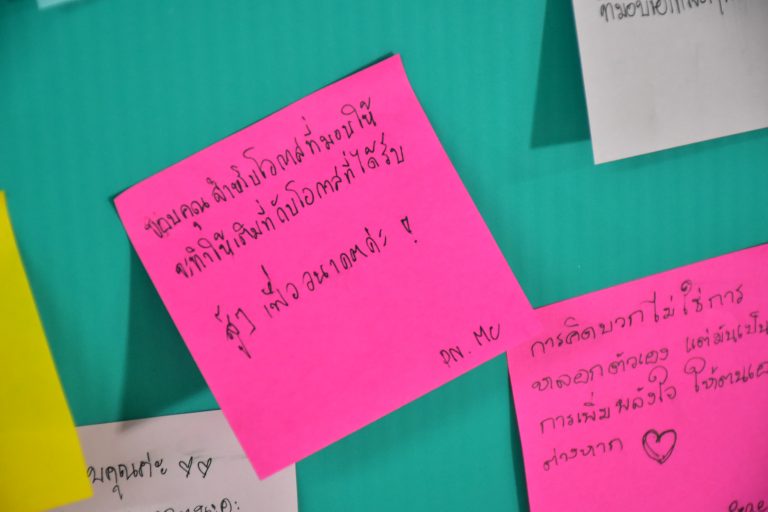 ขอบคุณสำหรับโอกาสที่มอบให้
จะทำให้เต็มที่กับโอกาสที่ได้รับ
สู้ๆ เพื่ออนาคตค่ะ !
PN. MC
การคิดบวกไม่ใช่การ
หลอกตัวเอง แต่มันเป็น
การเพิ่มพลังใจ ให้ตนเอง
ต่างหาก
บคุณค่ะ